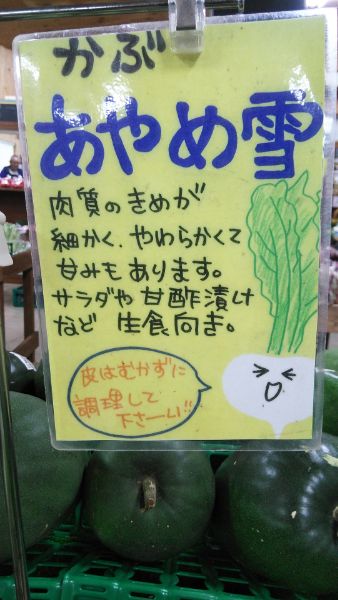 かぶ
あやめ雪
肉質のきめが
細かく、やわらかくて
甘みもあります。
サラダや甘酢漬け
など 生食向き。
皮はむかずに
調理して
下さーい!!